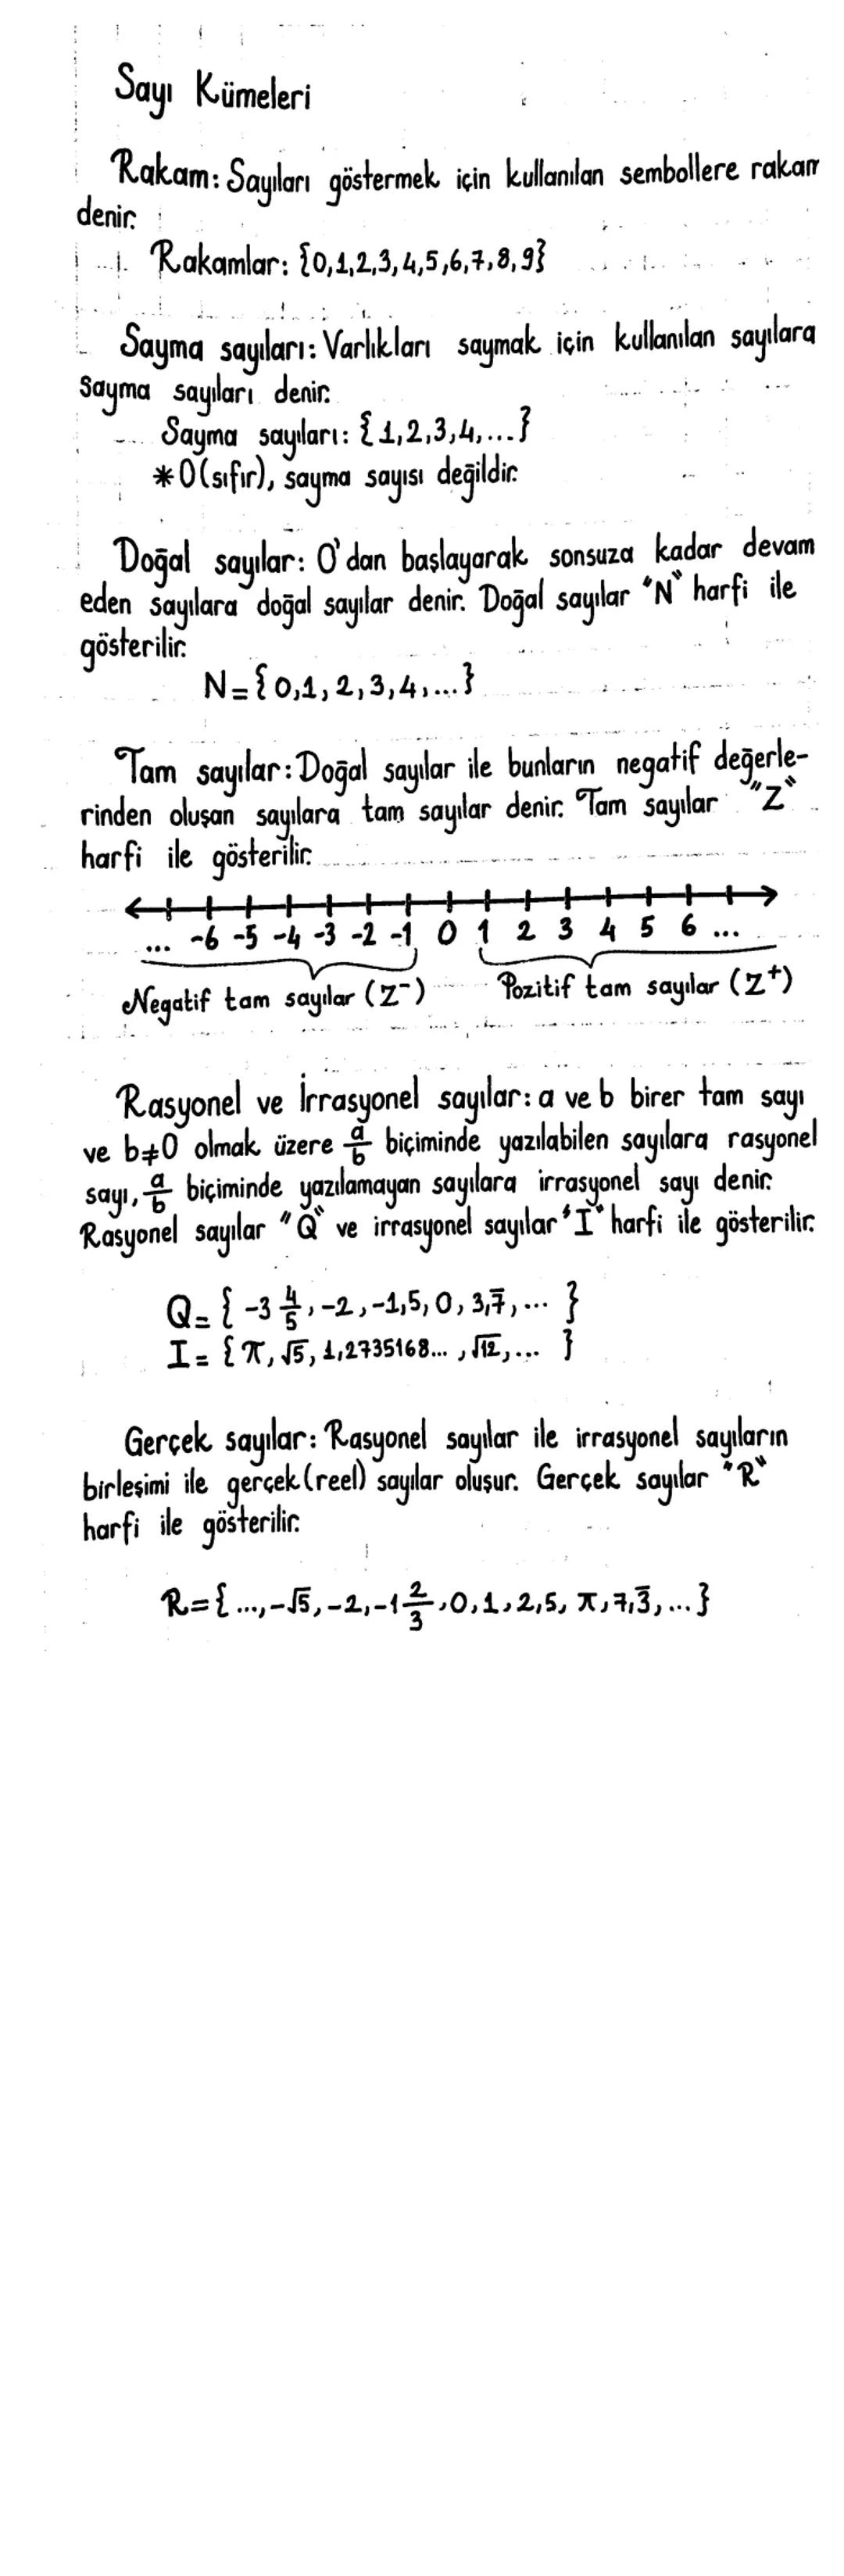 Sayı Kümeleri
Rakam: Sayıları göstermek için kullanılan sembollere rakam
denir.
Rakamlar: {0,1,2,3,4,5,6,7,8,9}
Sayma sayıları: Varlıkları saymak için kullanılan sayılara
sayma sayıları denir.
Sayma sayıları: {1,2,3,4,...}
*0(sıfır), sayma sayısı değildir.
Doğal sayılar: 0'dan başlayarak sonsuza kadar devam
eden sayılara doğal sayılar denir. Doğal sayılar "N" harfi ile
gösterilir.
N={0,1,2,3,4,...}
Tam sayılar: Doğal sayılar ile bunların negatif değerle-
rinden oluşan sayılara tam sayılar denir. Tam sayılar "Z"
harfi ile gösterilir.
... -6 -5 -4 -3 -2 -1 0 1 2 3 4 5 6 ...
Negatif tam sayılar (Z⁻) Pozitif tam sayılar (Z⁺)
Rasyonel ve İrrasyonel sayılar: a ve b birer tam sayı
ve b≠0 olmak üzere a/b biçiminde yazılabilen sayılara rasyonel
sayı, a/b biçiminde yazılamayan sayılara irrasyonel sayı denir.
Rasyonel sayılar "Q" ve irrasyonel sayılar "I" harfi ile gösterilir.
Q={-3 4/5, -2, -1,5, 0, 3,7̅, ...}
I={π, √5, 1,2735168..., √12, ...}
Gerçek sayılar: Rasyonel sayılar ile irrasyonel sayıların
birleşimi ile gerçek(reel) sayılar oluşur. Gerçek sayılar "R"
harfi ile gösterilir.
R={..., -√5, -2, -1 2/3, 0, 1, 2,5, π, 7,3̅, ...}